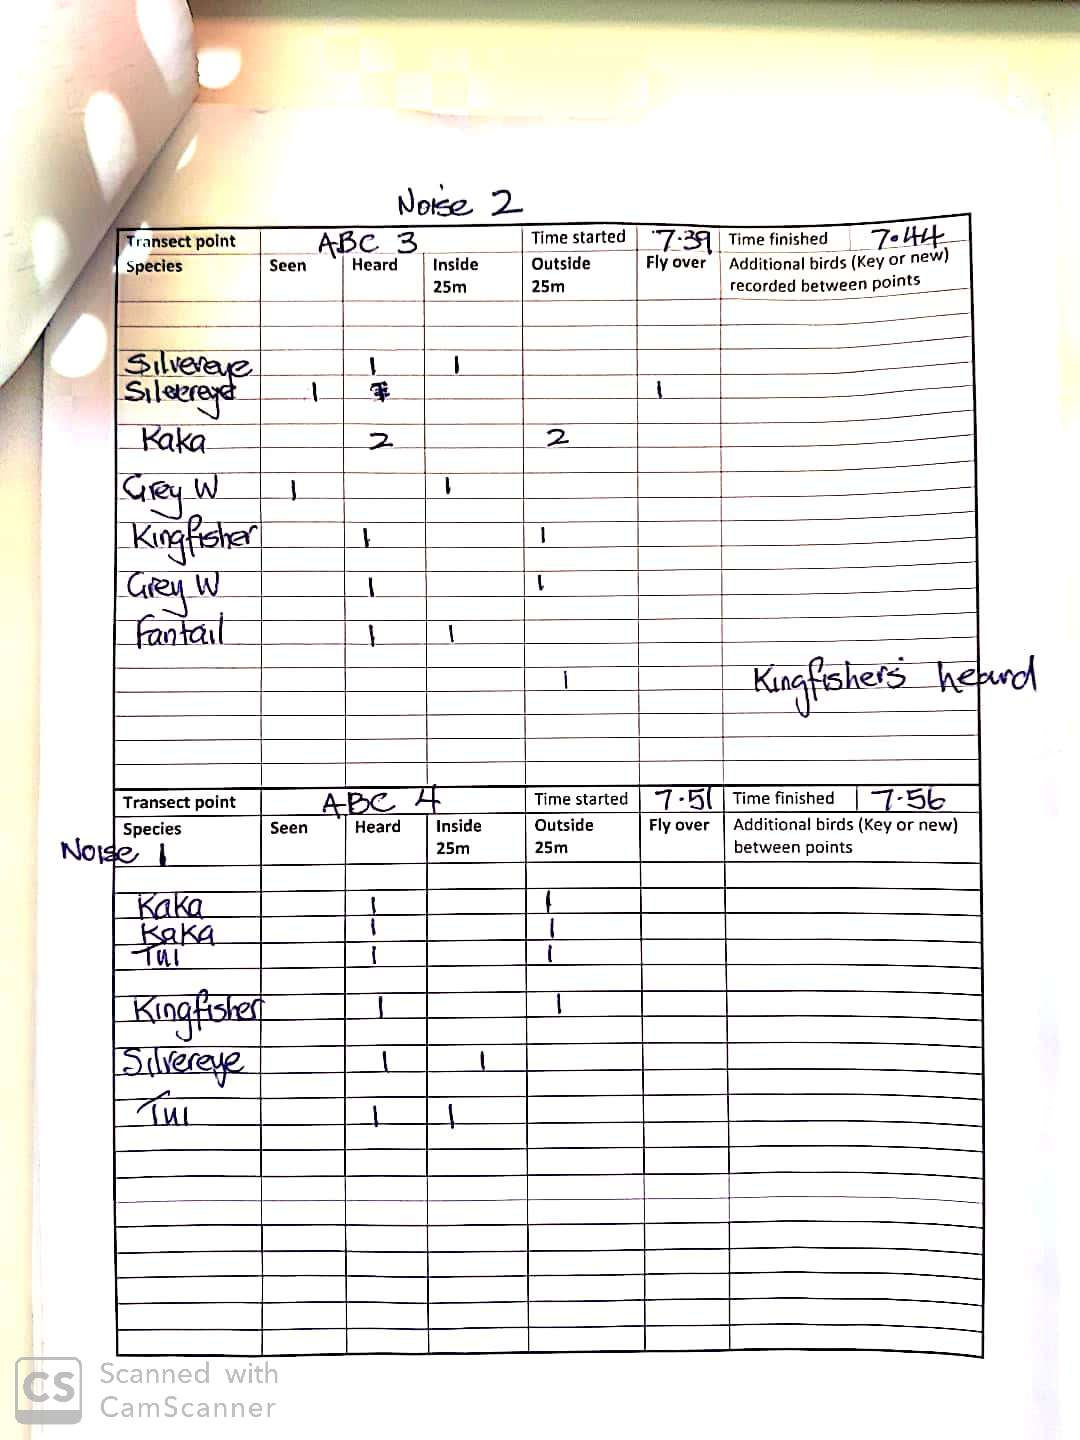 Noise 2
Transect point ABC 3 Time started 7.39 Time finished 7.44
Species Seen Heard Inside 25m Outside 25m Fly over Additional birds (Key or new) recorded between points
Silvereye 1 1
Silvereye 1 1
Kaka 2 2
Grey W 1 1
Kingfisher 1 1
Grey W 1 1
Fantail 1 1
1 Kingfishers heard
Transect point ABC 4 Time started 7.51 Time finished 7.56
Species Seen Heard Inside 25m Outside 25m Fly over Additional birds (Key or new) between points
Noise 1
Kaka 1 1
Kaka 1 1
Tui 1 1
Kingfisher 1 1
Silvereye 1 1
Tui 1 1
CS Scanned with CamScanner